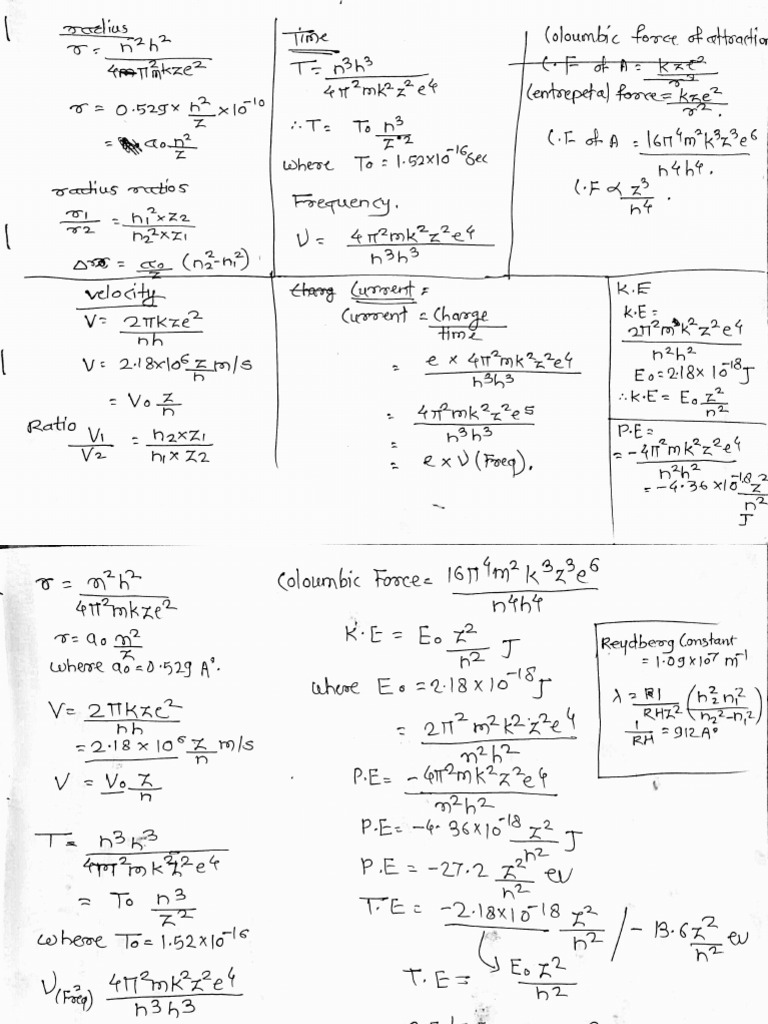 radius
r = n²h² / 4π²mkze²
r = 0.529 × n²/z × 10⁻¹⁰
= a₀ n²/z
radius ratios
r1/r2 = n₁² × z2 / n₂² × z1
Δr = a₀/z (n₂² - n₁²)
Time
T = n³h³ / 4π²mk²z²e⁴
∴ T = T₀ n³/z²
where T₀ = 1.52×10⁻¹⁶ sec
Frequency.
ν = 4π²mk²z²e⁴ / n³h³
Coloumbic force of attraction
C.F of A = kze²/r²
(entrepetal) force = kze²/r².
C.F of A = 16π⁴m²k³z³e⁶ / n⁴h⁴.
C.F ∝ z³/n⁴.
velocity
V = 2πkze² / nh
V = 2.18×10⁶ z/n m/s
= V₀ z/n
Ratio V₁/V₂ = n₂×z₁ / n₁×z₂
Charg Current =
Current = Charge / time
= e × 4π²mk²z²e⁴ / n³h³
= 4π²mk²z²e⁵ / n³h³
=
= e × ν (Freq).
K.E
K.E =
2π²mk²z²e⁴ / n²h²
E₀ = 2.18 × 10⁻¹⁸ J
∴ K.E = E₀ z²/n²
P.E =
= -4π²mk²z²e⁴ / n²h²
= -4.36 × 10⁻¹⁸ z²/n² J
r = n²h² / 4π²mkze²
r = a₀ n²/z
where a₀ = 0.529 A°.
V = 2πkze² / nh
= 2.18 × 10⁶ z/n m/s
V = V₀ z/n
T = n³h³ / 4π²mk²z²e⁴
= T₀ n³/z²
where T₀ = 1.52×10⁻¹⁶
ν (Freq) = 4π²mk²z²e⁴ / n³h³
Coloumbic Force = 16π⁴m²k³z³e⁶ / n⁴h⁴
K.E = E₀ z²/n² J
where E₀ = 2.18×10⁻¹⁸ J
= 2π²m²k²z²e⁴ / n²h²
P.E = -4π²mk²z²e⁴ / n²h²
P.E = -4.36×10⁻¹⁸ z²/n² J
P.E = -27.2 z²/n² ev
T.E = -2.18×10⁻¹⁸ z²/n² / -13.6 z²/n² ev
T.E = E₀ z²/n²
Reydberg Constant
= 1.09×10⁷ m⁻¹
λ = 1/RHZ² (n₂² n₁² / n₂² - n₁²)
1/RH = 912 A°